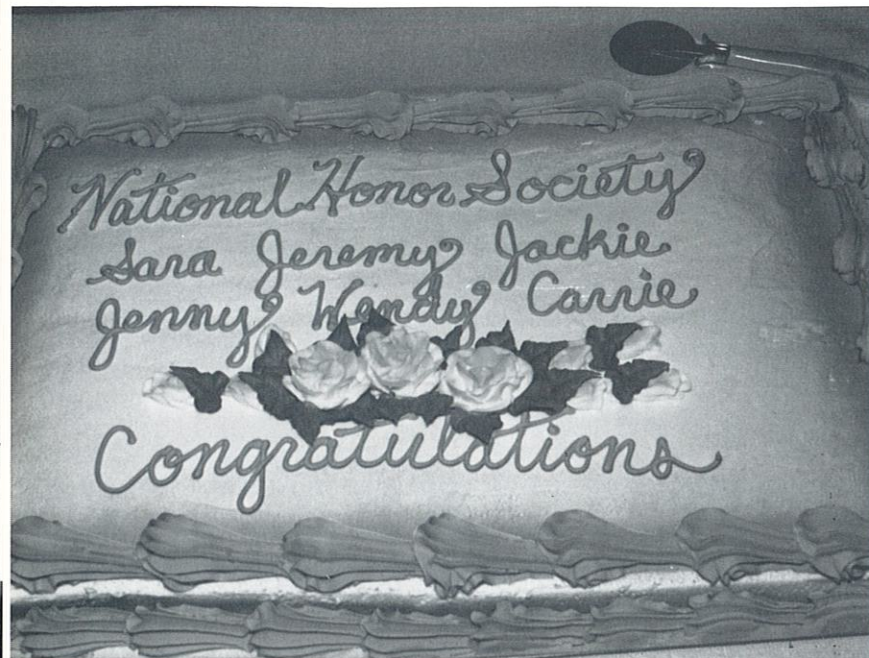 National Honor Society
Sara Jeremy Jackie
Jenny Wendy Carrie
Congratulations